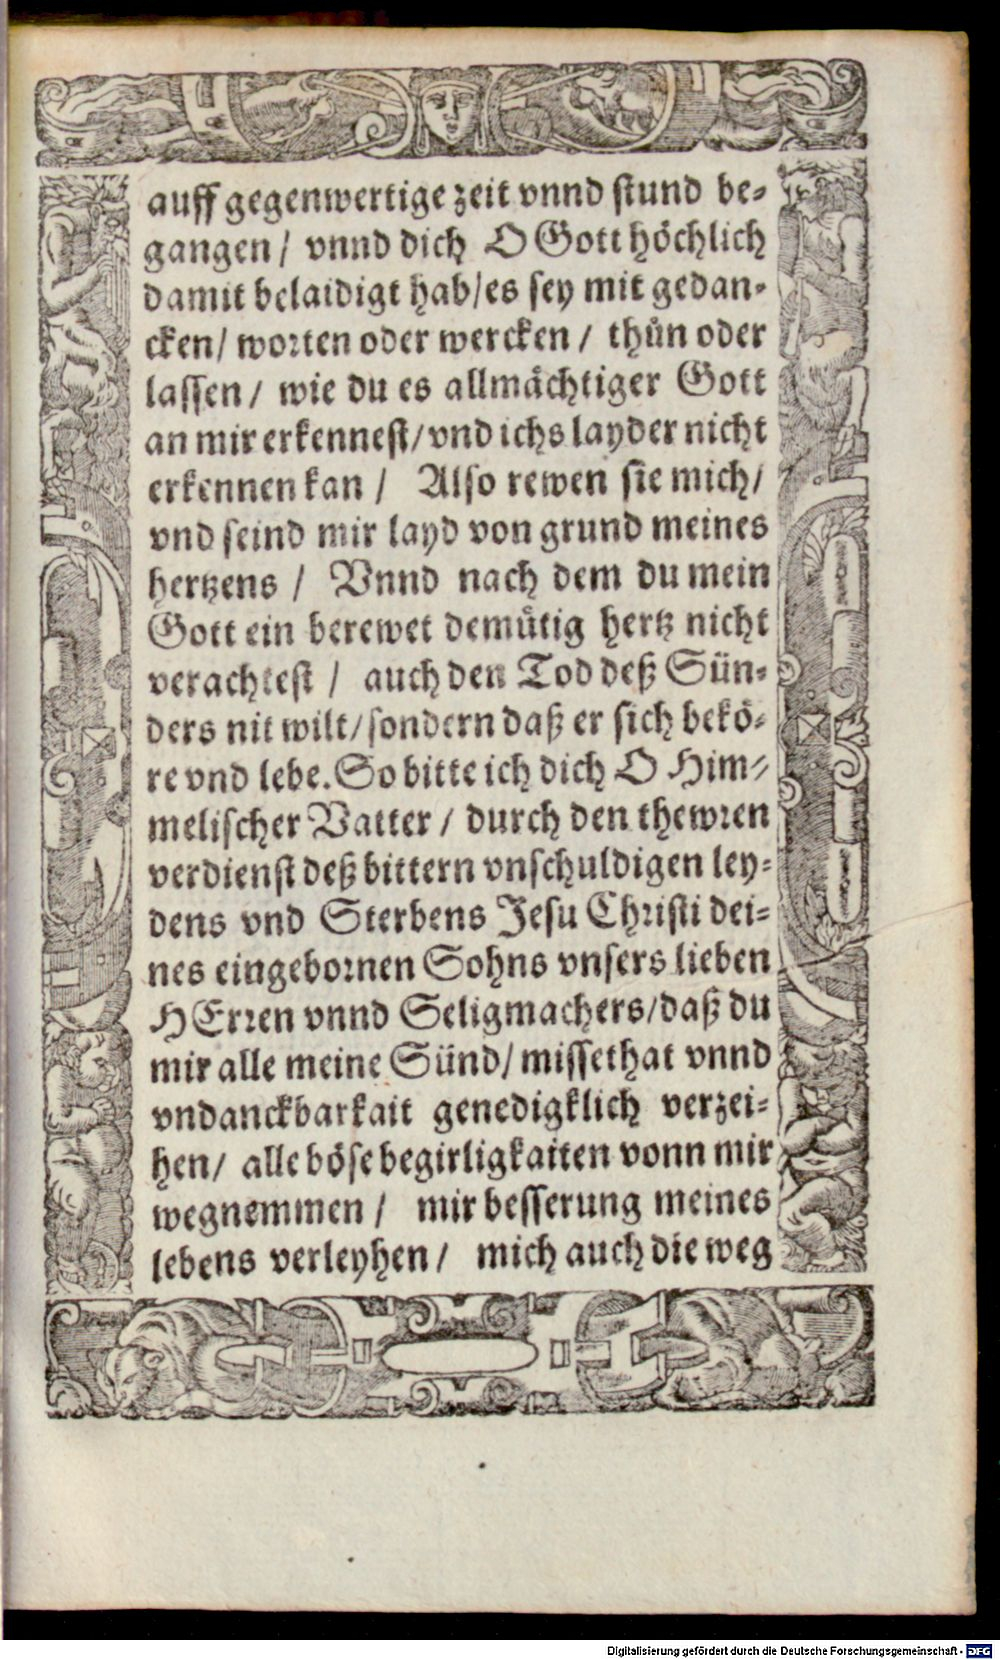 auff gegenwertige zeit vnnd stund be-
gangen / vnnd dich O Gott höchlich
damit belaidigt hab/es sey mit gedan-
cken/ worten oder wercken / thůn oder
lassen / wie du es allmächtiger Gott
an mir erkennest/vnd ichs layder nicht
erkennen kan / Also rewen sie mich/
vnd seind mir layd von grund meines
hertzens / Vnnd nach dem du mein
Gott ein berewet demütig hertz nicht
verachtest / auch den Tod deß Sün-
ders nit wilt/sondern daß er sich bekö-
re vnd lebe. So bitte ich dich O Him-
melischer Vatter / durch den thewren
verdienst deß bittern vnschuldigen ley-
dens vnd Sterbens Jesu Christi dei-
nes eingebornen Sohns vnsers lieben
HErren vnnd Seligmachers/daß du
mir alle meine Sünd/ missethat vnnd
vndanckbarkait genedigklich verzei-
hen/ alle böse begirligkaiten vonn mir
wegnemmen / mir besserung meines
lebens verleyhen / mich auch die weg
Digitalisierung gefördert durch die Deutsche Forschungsgemeinschaft - DFG